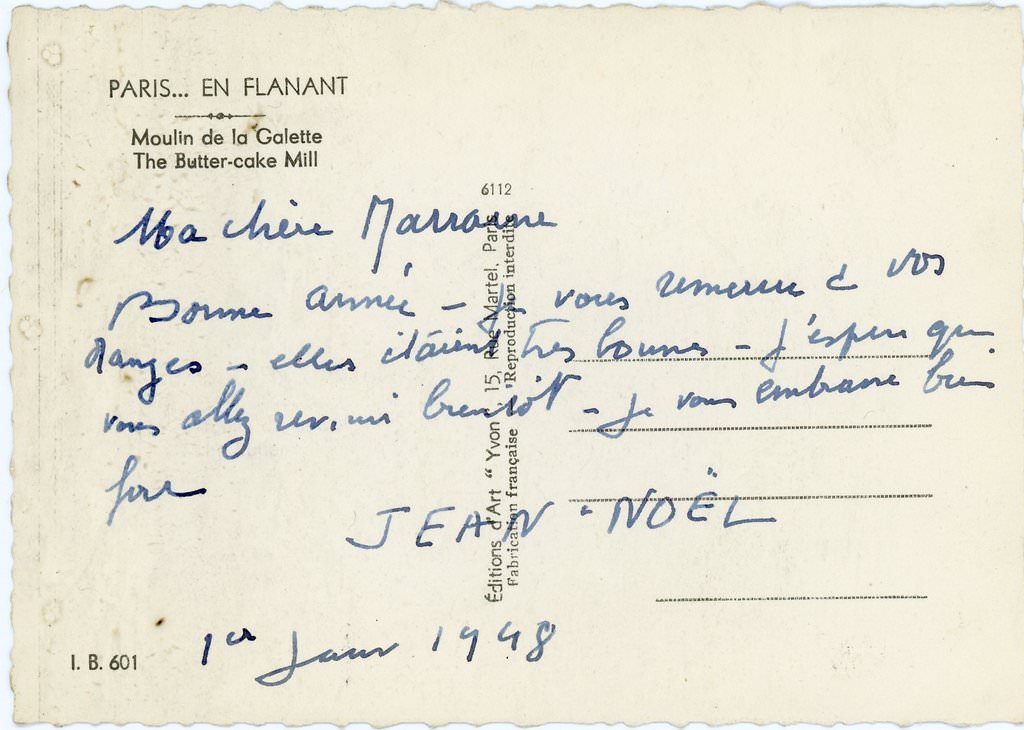 PARIS... EN FLANANT
Moulin de la Galette
The Butter-cake Mill
6112
Ma chère Marraine
Bonne année – Je vous remercie d vos
oranges – elles étaient très bonnes – J'espère que
vous allez revenir bientôt – Je vous embrasse bien
fort
JEAN-NOËL
1er Janv 1948
I. B. 601
Éditions d'Art "Yvon", 15, Rue Martel, Paris
Fabrication française Reproduction interdite